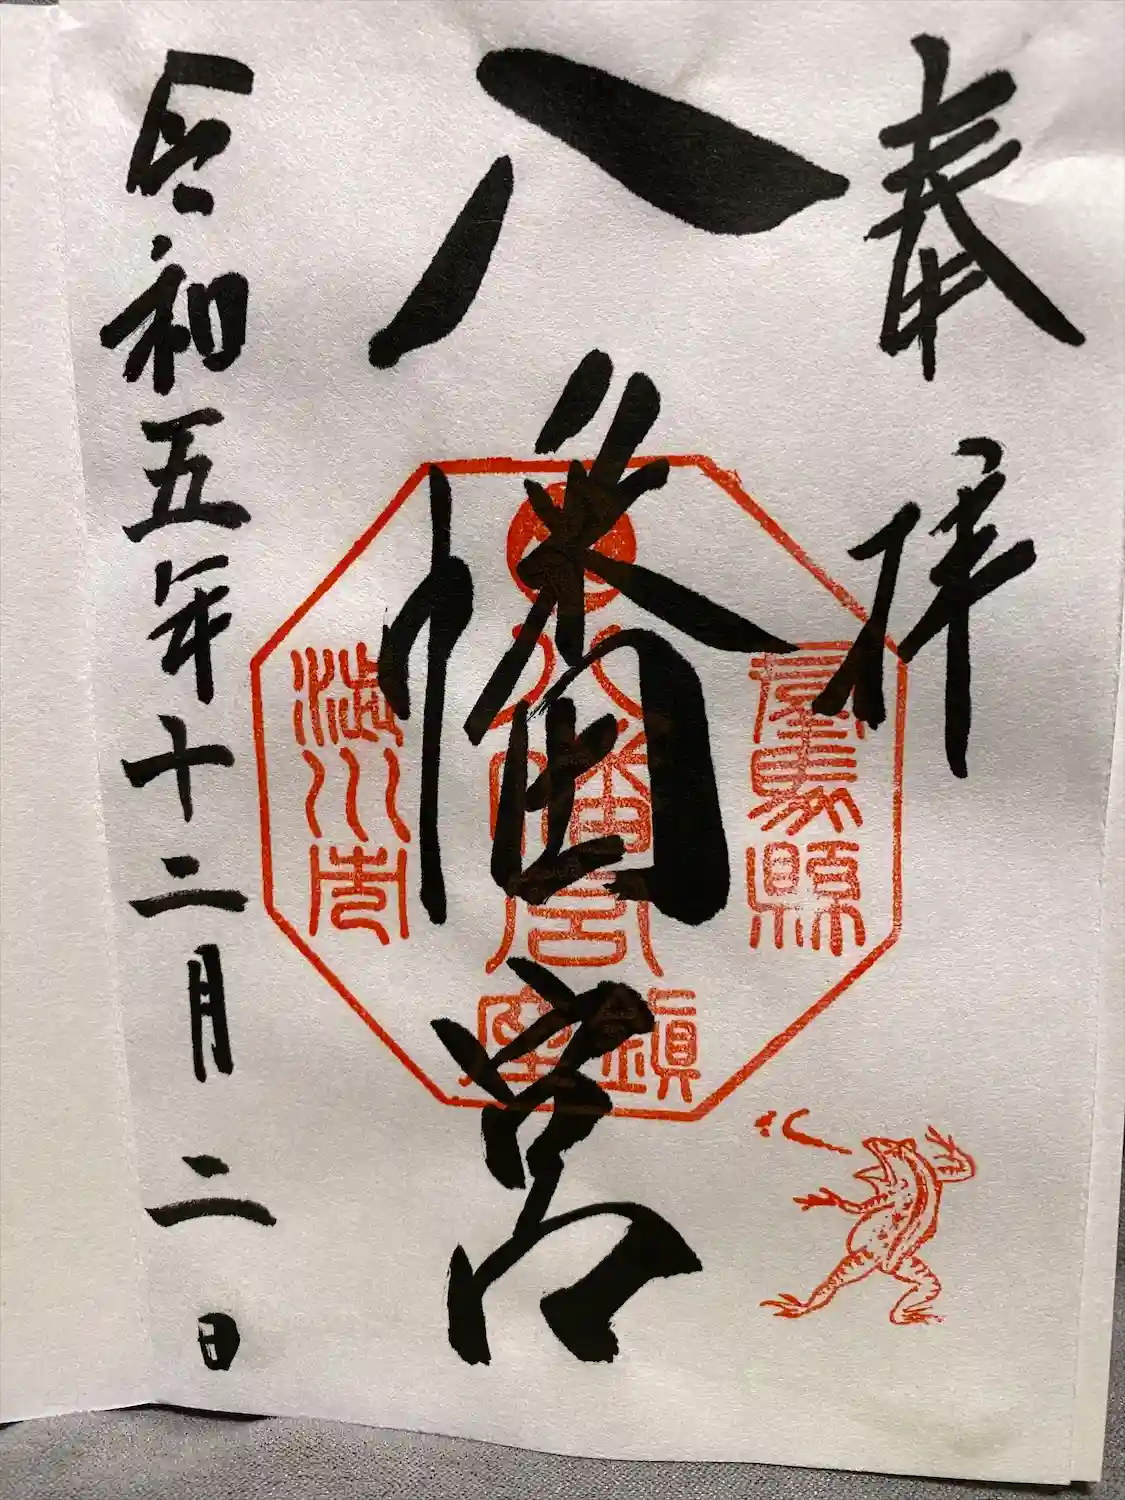 奉拝
八幡宮
令和五年十二月二日
群馬縣
八幡宮
鎮座
渋川市